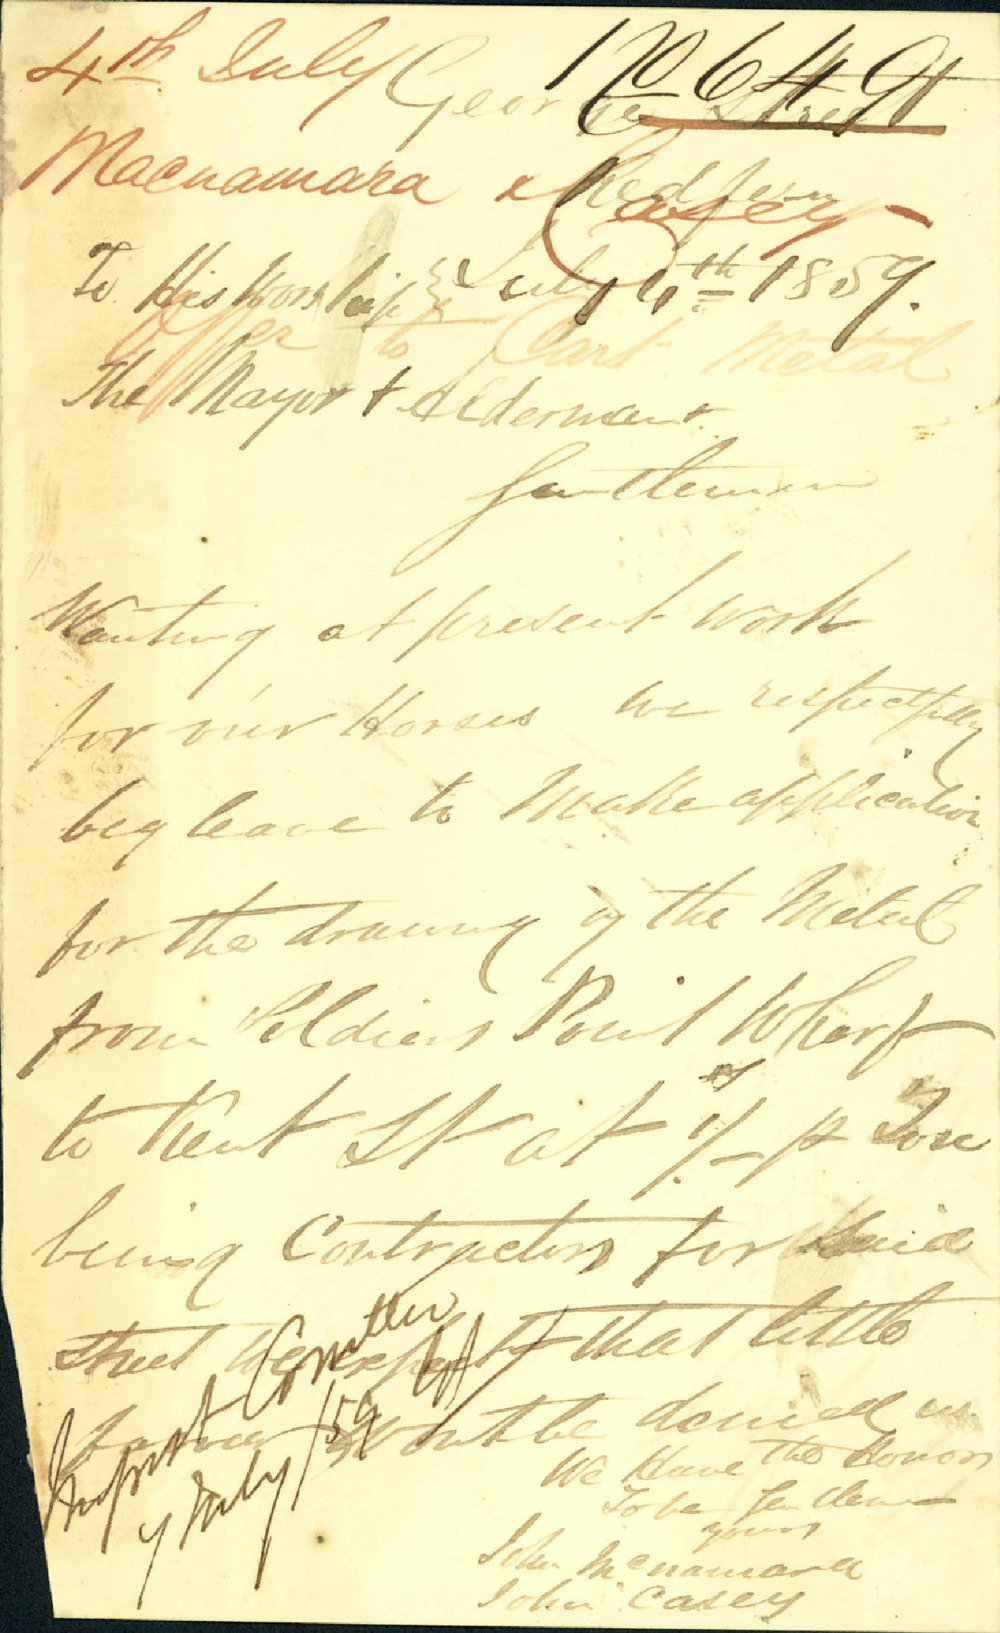 4th July
No 649
George Street
Macnamara & Casey
Redfern
To His Worship } July 4th 1859.
Offer to Cart Metal
The Mayor + Alderman.
Gentlemen
Wanting at present work
for our Horses we respectfully
beg leave to Make application
for the drawing of the Metal
from Soldiers Point Wharf
to Kent St at 1/- p Ton
being Contractors for Said
Street We expect that little
favour Wont be denied us
We Have the Honor
To be Gentlemen
yours
John McNamara
John Casey
Improvt Committee
7 July /59